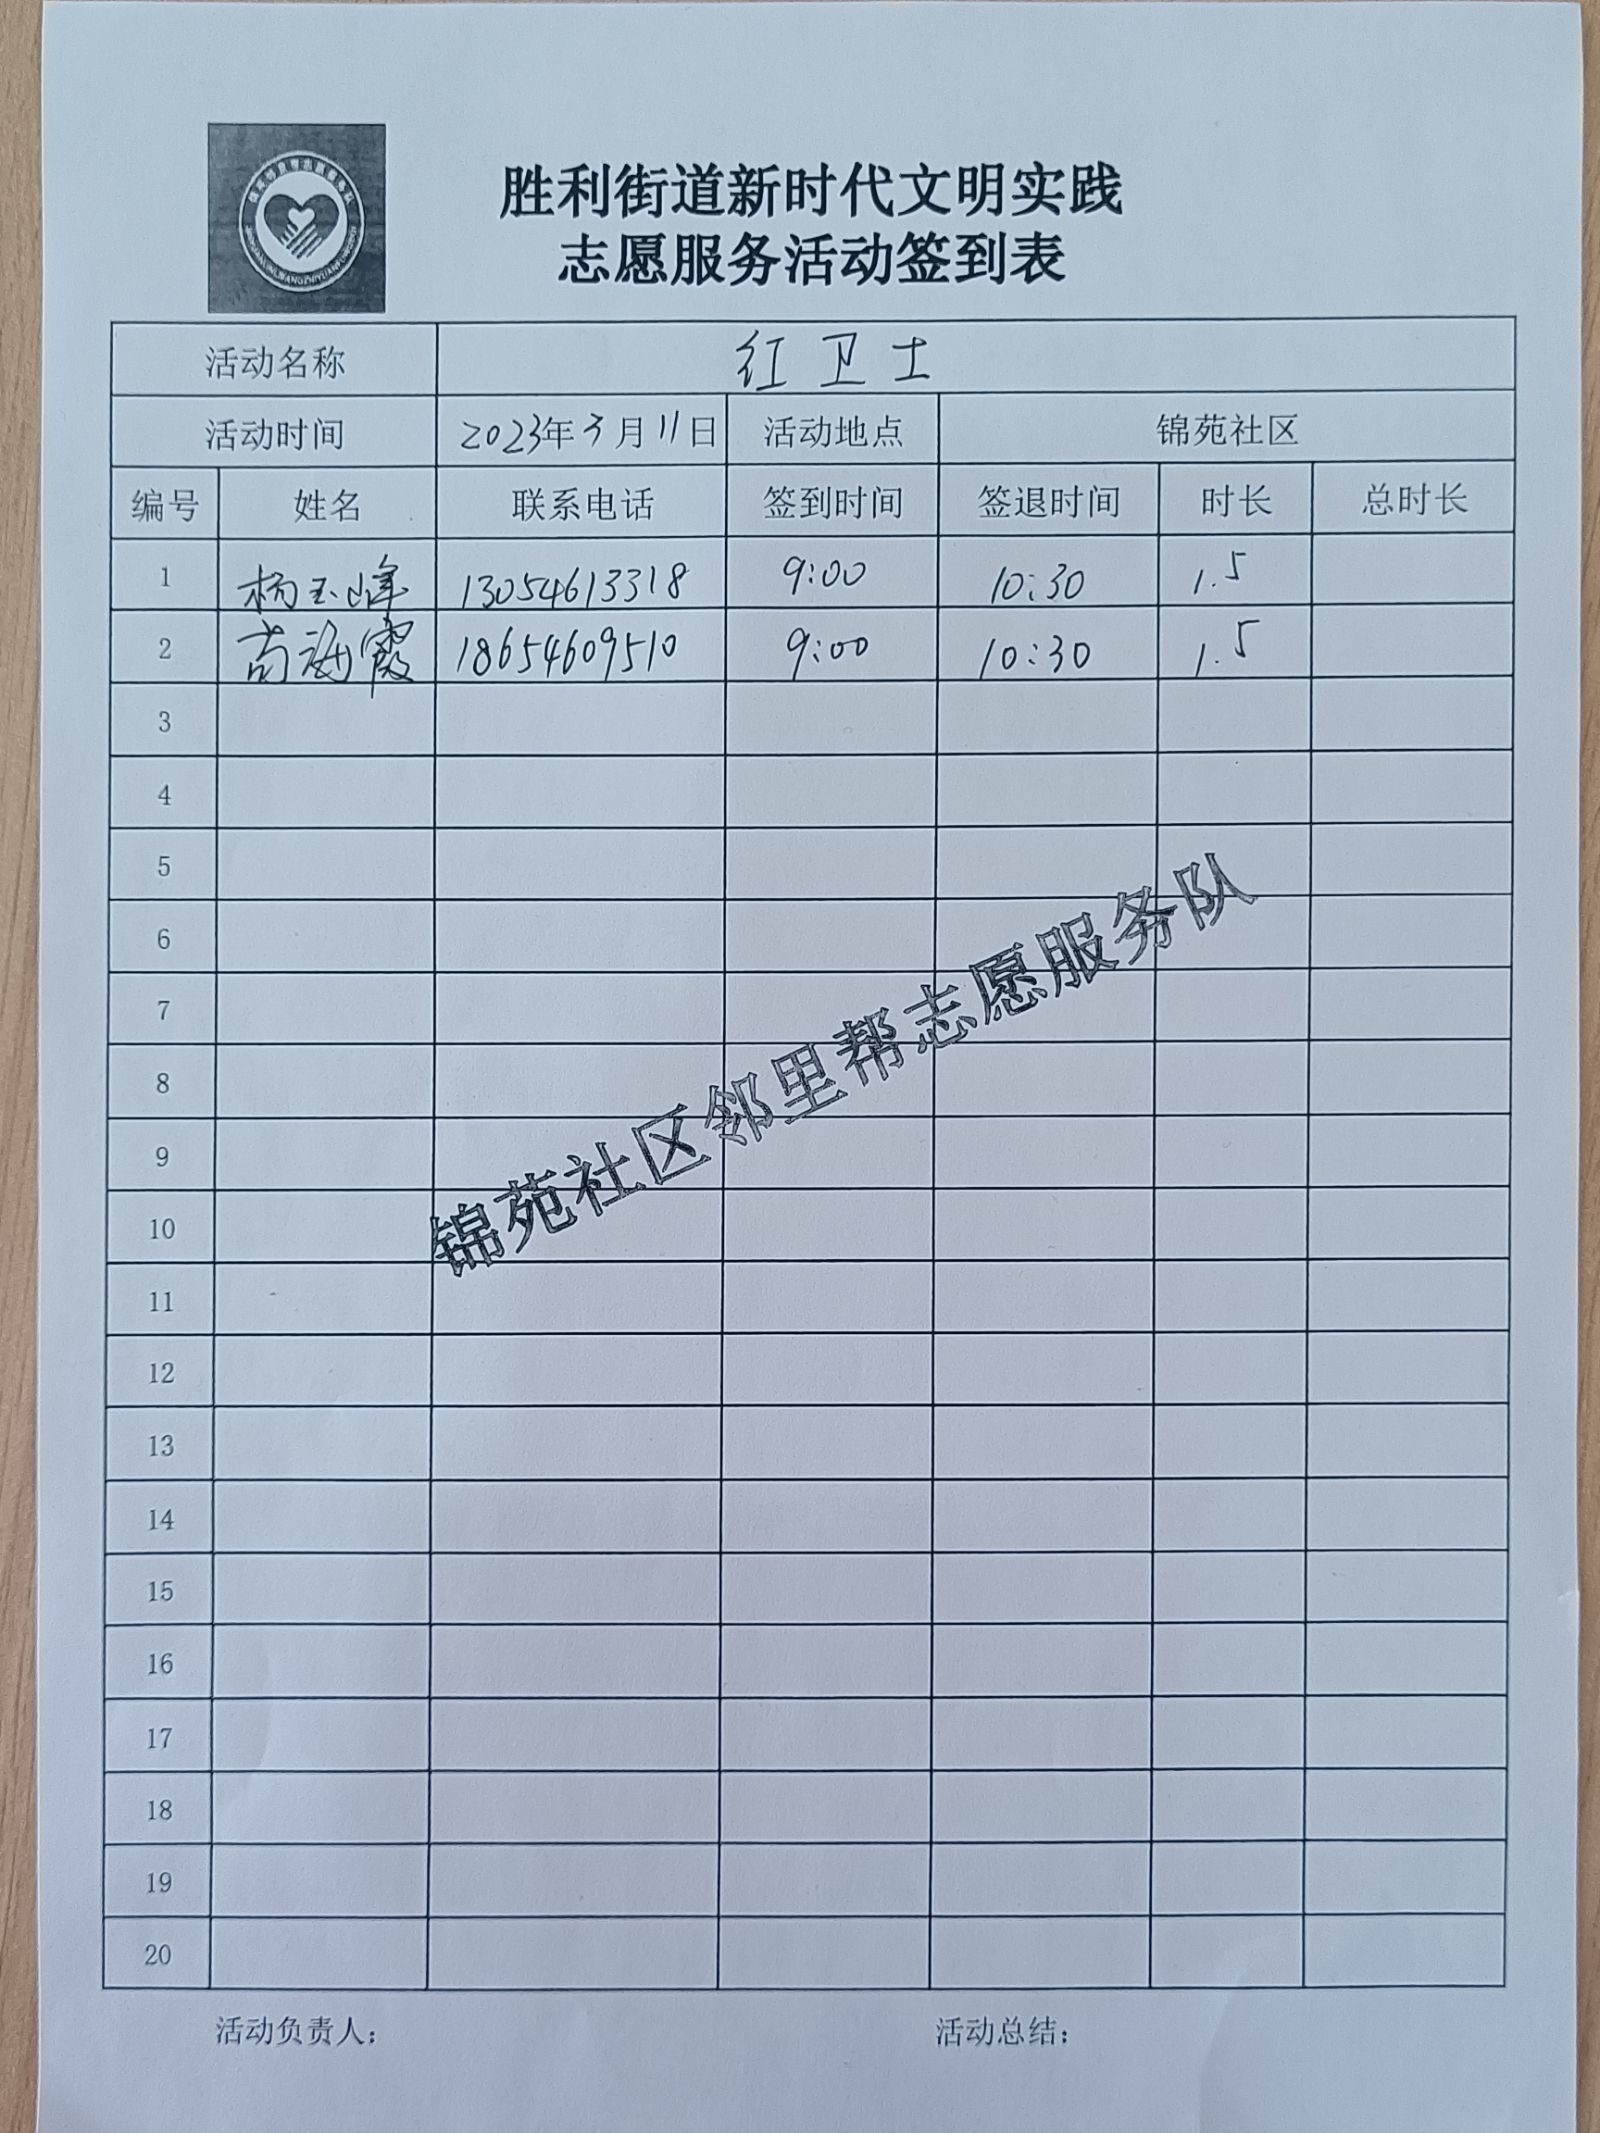 胜利街道新时代文明实践
志愿服务活动签到表
活动名称 红卫士
活动时间 2023年3月11日 活动地点 锦苑社区
编号 姓名 联系电话 签到时间 签退时间 时长 总时长
1 杨玉峰 13054613318 9:00 10:30 1.5
2 尚海霞 18654609510 9:00 10:30 1.5
3
4
5
6
7
8
9
10
11
12
13
14
15
16
17
18
19
20
锦苑社区邻里帮志愿服务队
活动负责人： 活动总结：